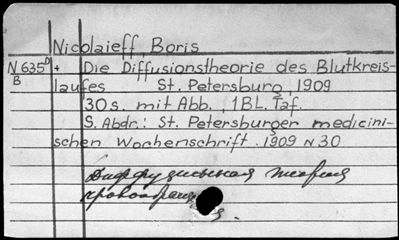 Nicolaieff, Boris
N 635ᴰ + Die Diffusionstheorie des Blutkreis-
B
laufes St. Petersburg, 1909
30 s. mit Abb., 1 BL. Taf.
S. Abdr.: St. Petersburger medicini-
schen Wochenschrift. 1909 N 30
Диффузионная теория